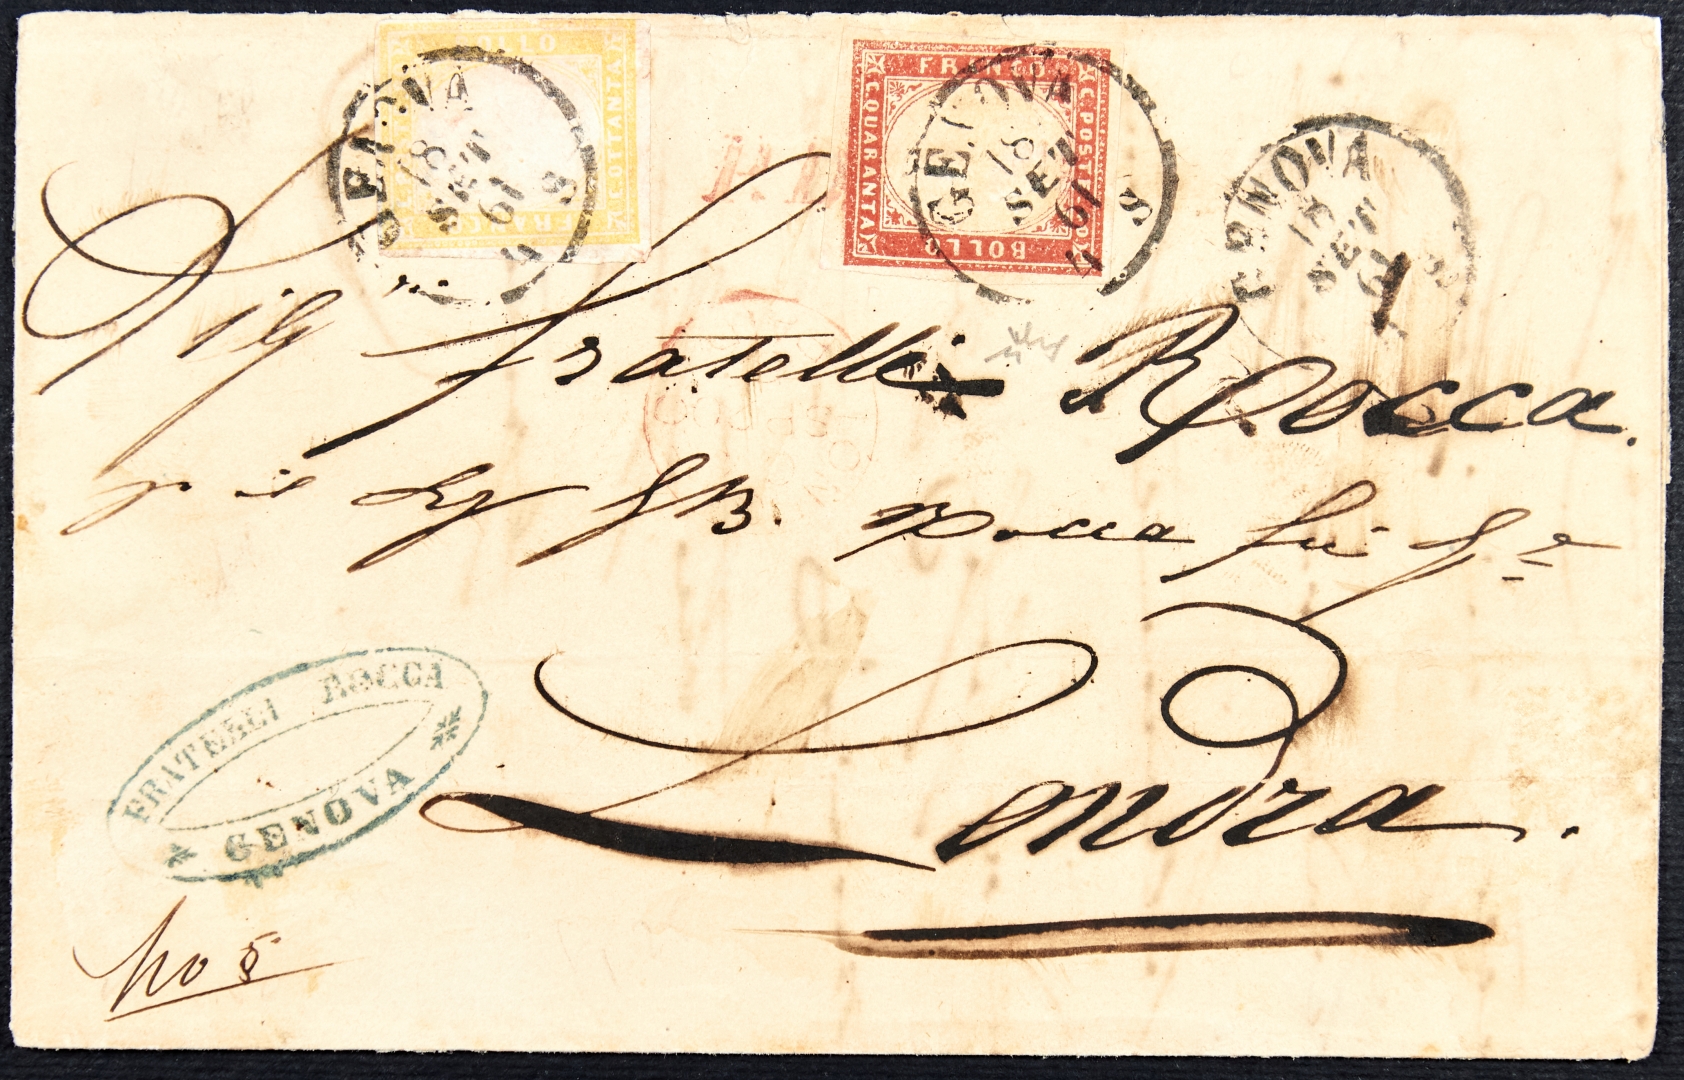 BOLLO
C. OTTANTA
FRANCO
GENOVA
18
SET
61
4 S
FRANCO
C. QUARANTA
C. POSTE
BOLLO
GENOVA
18
SET
61
4 S
GENOVA
18
SET
61
Sig Fratelli Rocca.
GB. Rocca
Londra.
FRATELLI ROCCA
GENOVA
No 5